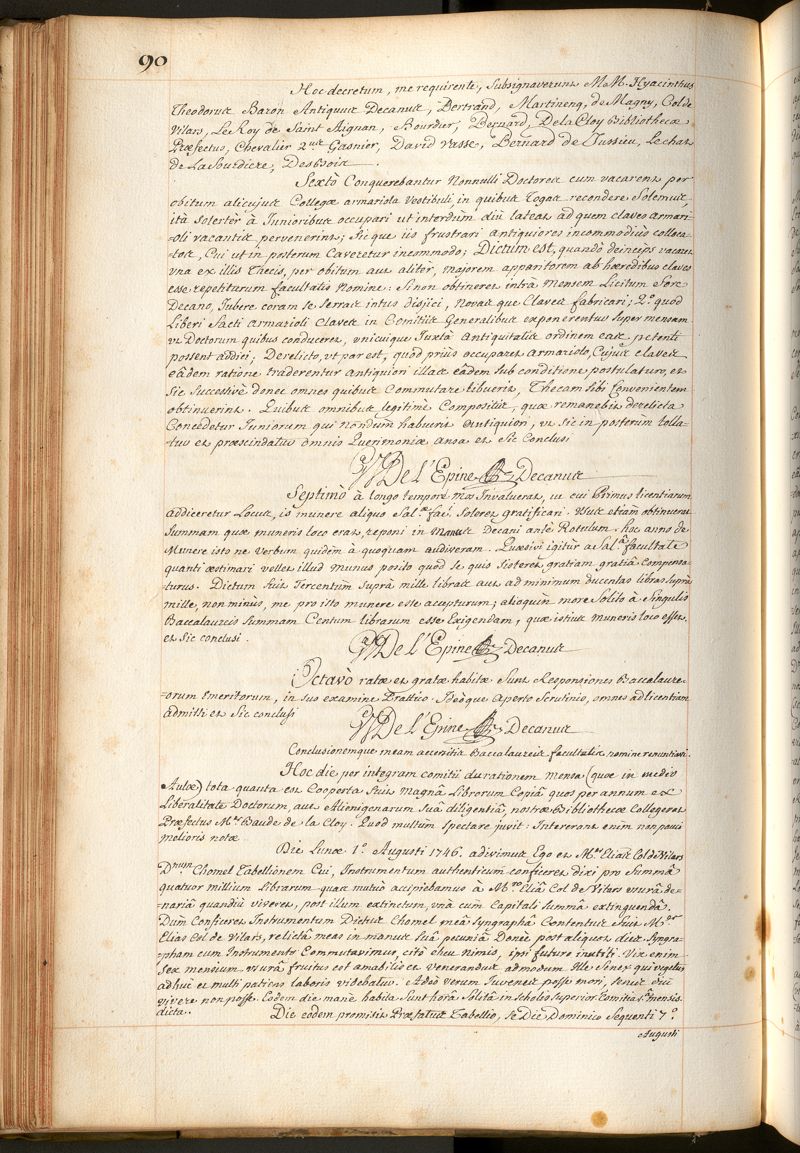 90
Hoc decretum, me requirente, Subsignaverunt M.M. Hyacinthus
Theodorus Baron Antiquus Decanus, Bertrand, Martineng, de Magny, Col de
Vilars, Le Roy de Saint Aignan, Bourdier, Bernard, De la Cloy Bibliothecæ
Præfectus, Chevalier, 2us Gasnier, David Vasse, Bernard de Jussieu, Lechat
de La Sourdiere, Desbois.
Sextò Conquerebantur Nonnulli Doctores cum vacarent per
obitum alicujus Collegæ armariola Vestibuli, in quibus Togas recondere Solemus,
ità Solerter à Junioribus occupari ut interdum diù lateat ad quem claves armari-
oli vacantis pervenerint; Sic que iis frustrari antiquiores incommodiùs colloca-
tos, Cui ut in posterum Caveretur incommodo; Dictum est, quandò deinceps vacaret
una ex illis Thecis, per obitum aut aliter, majorem apparitorem ab hæredibus claves
esse repetiturum facultatis Nomine: Si non obtineret intrà Mensem Licitum fore
Decano, Jubere coram se Serras intus disjici, Novas que Claves fabricari; 2.° quod
Liberi facti armarioli Claves in Comitiis Generalibus exponerentur super mensam
ut Doctorum quibus conduceret, unicuique Juxtà Antiquitatis ordinem eas petenti
possent addici; Derelicto, ut par est, quod priùs occuparet armariolo, Cujus claves
eâdem ratione traderentur antiquiori illas eâdem Sub conditione postulaturo, et
Sic Successivè donec omnes quibus Commutare libuerit, Thecam Sibi Convenientem
obtinuerint. Quibus omnibus legitimè Compositis, quæ remanebit derelicta
Concedetur Juniorum qui nondum habuerit Antiquiori, ut Sic in posterum tolla-
tur et præscindatur omnis Querimoniæ Ansa et Sic Conclusi
W De l'Epine Decanus
Septimò à longo tempore mos Invaluerat, ut cui Primus licentiarum
addiceretur Locus, is munere aliquo Sal.æ fac. Soleret gratificari. Usus etiam obtinuerat
Summam quæ muneris loco erat, reponi in manus Decani antè Rotulum. hoc anno de
Munere isto ne Verbum quidem à quoquam audiveram. Quæsivi igitur a Sal.â facultate
quanti æstimari vellet illud munus posito quod se quis sisteret gratiam gratiâ compensa-
turus. Dictum fuit Tercentum Suprà mille libras aut ad minimum ducentas libras suprà
mille, non minùs, me pro isto munere este accepturum; alioquin more Solito à Singulis
Baccalaureis Summam Centum librarum esse Exigendam, quæ istius muneris loco esset,
et Sic conclusi.
W De l'Epine Decanus
Octavò ratæ et gratæ habitæ Sunt Responsiones Baccalaure-
orum Emeritorum, in suo examine Prattico. Ideòque Aperto Scrutinio, omnes ad licentiam
admissi et Sic conclusi
W De l'Epine Decanus
Conclusionemque meam accersitis Baccalaureis facultatis nomine renuntiavi.
Hoc die per integram comitii durationem Mensa (quæ in medio
Aulæ) tota quanta est Cooperta fuit magnâ Librorum Copiâ quos per annum ex
Liberalitate Doctorum, aut Alienigenarum Suâ diligentiâ, nostræ Bibliothecæ Collegerat
Præfectus M.er Baude de la Cloy. Quod multùm Spectare juvit: Intererant enim non pauci
melioris notæ
Die Lunæ 1.° Augusti 1746. adivimus Ego et M.er Elias Col de Vilars
Dnum Chomel Tabellionem Cui, Instrumentum authenticum conficeret dixi pro Summâ
quatuor millium Librarum quas mutuò accipiebamus à M.ro Eliâ Col de Vilars usurâ de-
nariâ quandiù viveret, post illum extinctum, unà cum Capitali Summâ extinguendâ.
Dum Conficeret Instrumentum Dictus Chomel meâ Syngraphâ Contentus fuit M.er
Elias Col de Vilars, relictâ meas in manus Suâ pecuniâ Donec post aliquot dies Syngra-
pham cum Instrumento Commutavimus, citò eheu nimis, ipsi futuro inutili. Vix enim
Sex mensium usurâ fruitus est amabilis et Venerandus admodum Ille Senex qui vegetus
adhuc et multi patiens laboris videbatur. Adeò verum Juvenes posse mori, Senes diù
vivere non posse. Eodem die manè habita Sunt horâ Solitâ in Scholis superior. Comitia 1.â mensis
dicta.
Die eodem promisit Præfatus Tabellio, se Die Dominico Sequenti 7.°
Augusti